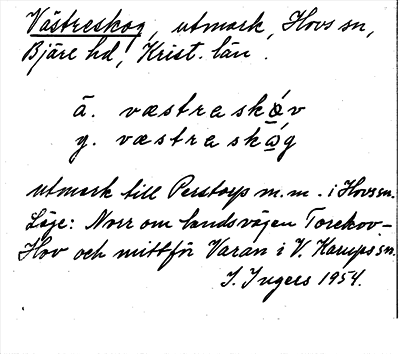 Västreskog, utmark, Hovs sn,
Bjäre hd, Krist. län.
ä. væstraskǻv
y. væstraskǻg
utmark till Perstorp m.m. i Hovs sn.
Läge: Norr om landsvägen Torekov-
Hov och mittför Varan i V. Karups sn.
I. Ingers 1954.